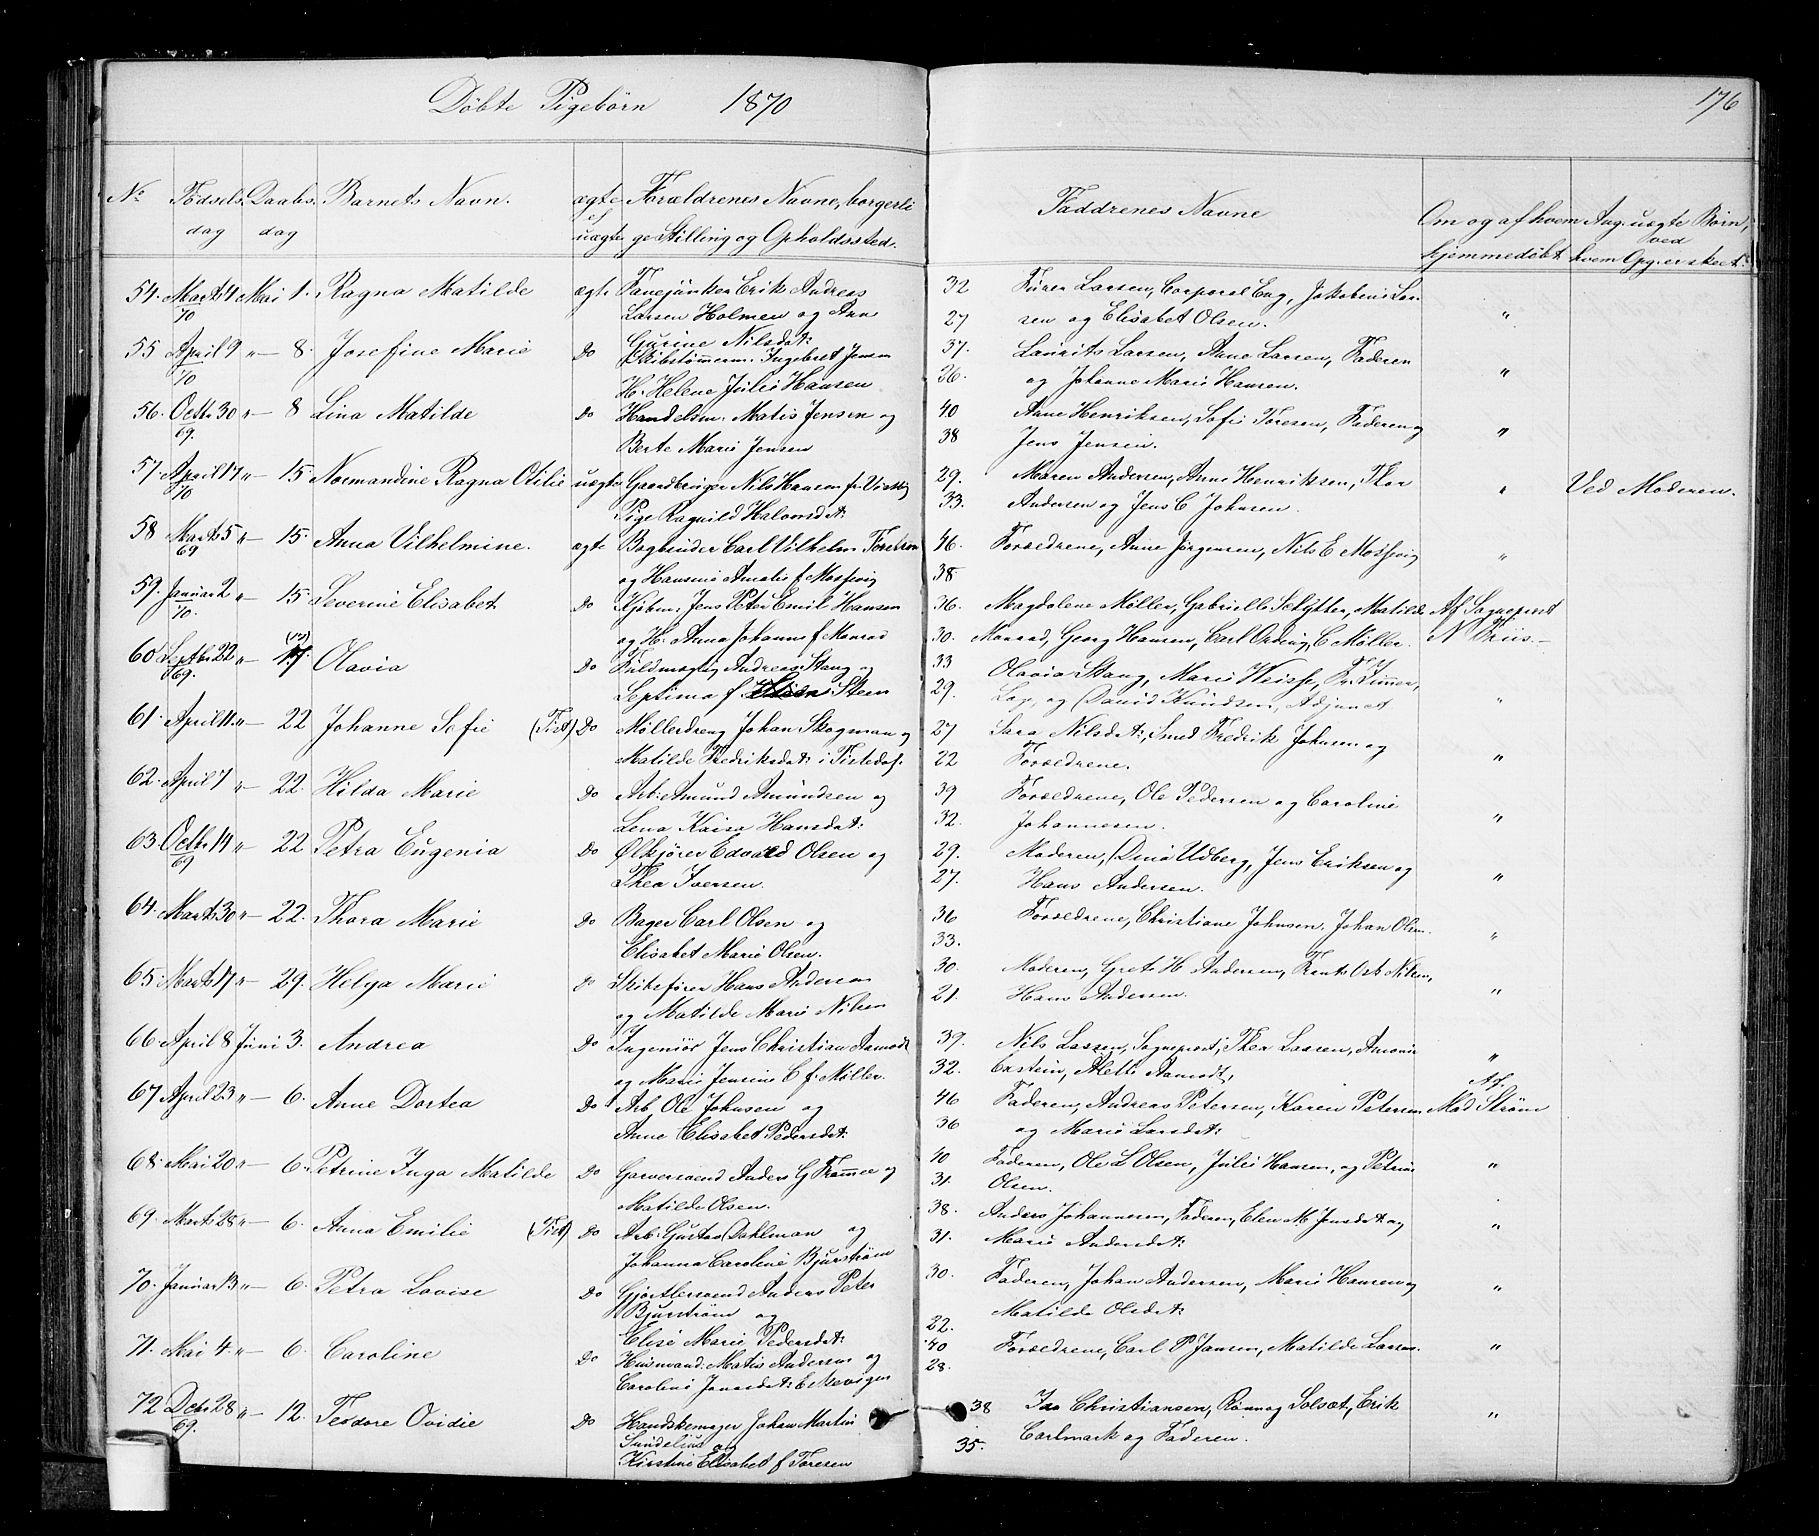 Döbte Pigebörn 1870
176
No Födsels dag Daabs dag Barnets Navn. ægte el. uægte Forældrenes Navne, borgerlige Stilling og Opholdssted.
Faddrenes Navne
Om og af hvem hjemmedöbt
Ang. uægte Börn, ved hvem Opg. er skeet.
54. Marts 4/70 Mai 1. Ragna Matilde ægte Fanejunker Erik Andreas 32
Larsen Holmen og Ane 27
Gurine Nilsdat:
Larsen, Corporal Eng, Jakobine Lar-
sen og Elisabet Olsen. "
55 April 9/70 " — 8. Josefine Marie Do Skibstømmerm. Ingebret Jensen 37.
H. Helene Julie Hansen 26.
Laurits Larsen, Anne Larsen, Faderen
og Johanne Marie Hansen. "
56. Octb. 30/69. " — 8 Lina Matilde Do Handelsm. Matis Jensen og 40
Berte Marie Jensen 38
Anne Henriksen, Sofie Toresen, Faderen og
Jens Jensen. "
57. April 17/70 " — 15. Normandine Ragna Otilie uægte Gaardbruger Nils Hansen fr. 29.
Pige Ragnild Halvorsdat: 33.
Maren Andersen, Anne Henriksen, Thor
Andersen og Jens C Johnsen. " Ved Moderen.
58 Marts 5/69 " — 15. Anna Vilhelmine. ægte Bogbinder Carl Vilhelm 46.
og Hansine Amalie f. Mossvig 38
Forældrene, Anne Jörgensen, Nils E Mossvig "
59. Januar 2/70. " — 15 Severine Elisabet Do Kjöbm: Jens Peter Emil Hansen 36.
og H. Anna Johanne f. Monrad 30.
Magdalene Møller, Gabrielle Schlytter, Matilde
Monrad, Georg Hansen, Carl Ording, C Møller. Af Sogneprest
N Friis. —
60 Septbr 22/69. " — 17 Olavia Do Fuldmægtig Andreas Stang og 33
Septima f. Steen 29.
Olavia Stang, Marie Weisse,
og David Knudsen, Adjunct "
61. April 11. " — 22 Johanne Sofie (Tist) Do Møllerdreng Johan Skogman og 27
Matilde Fredriksdat: i Tistedal. 22
Sara Nilsdat:, Smed Fredrik Johnsen og
Forældrene. "
62. April 7 " — 22. Hilda Marie Do Arb: Amund Amundsen og 39
Lena Kaisa Hansdat: 32.
Forældrene, Ole Pedersen og Caroline
Johannesen. "
63. Octb. 14/69 " — 22 Petra Eugenia Do Ølkjører Edvard Olsen og 29.
Thea Iversen. 27.
Moderen, Dina Udberg, Jens Eriksen og
Hans Andersen. "
64. Marts 30 " — 22. Thora Marie Do Bager Carl Olsen og 36
Elisabet Marie Olsen. 33.
Forældrene, Christiane Johnsen, Johan Olsen. "
65. Marts 17 " — 29. Helga Marie Do Skibsförer Hans Andersen 30.
og Matilde Marie Nilsen 21.
Moderen, Grete H Andersen, Frants Osk Nilsen,
Hans Andersen. "
66 April 8 Juni 3. Andrea Do Ingeniör Jens Christian Aamodt 39.
og Marie Jensine C f. Møller. 32.
Nils Lassen, Sogneprest, Thea Lassen,
Erstein, Alette Aamodt, "
67 April 23 " — 6. Anne Dortea Do Arb. Ole Johnsen og 46
Anne Elisabet Pedersdat: 36
Faderen, Andreas Petersen, Karen Petersen
og Marie Larsdat: Af
Mad Ström
68. Mai 20 " — 6. Petrine Inga Matilde Do Garversvend Anders G Framme og 40
Matilde Olsen. 31.
Faderen, Ole L Olsen, Julie Hansen, og Petrine
Olsen. "
69. Marts 28 " — 6. Anna Emilie (Tist) Do Arb: Gustav Dahlman og 38.
Johanna Caroline Bjurström 31.
Anders Johannesen, Faderen, Elen M Jensdat og
Marie Andersdat: "
70. Januar 13 " — 6. Petra Lovise Do Gjørtlersvend Anders Peter 30.
Bjurström og
Elise Marie Pedersdat: 22.
Faderen, Johan Andersen, Marie Hansen og
Matilde Olsdat: "
71. Mai 4. " — 6. Caroline Do Husmand: Matis Andersen og 40
Caroline Jonasdat: E Nevigen 28.
Forældrene, Carl P Jansen, Matilde Larsen. "
72 Decbr 28/69. " — 12. Teodore Ovidie Do Handskemager Johan Martin 38
Sundelius og
Kirstine Elisabet f Toresen 35.
Christiansen, Rönnog Solsæt, Erik
Carlmark og Faderen. "